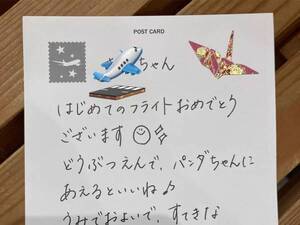 POST CARD
ちゃん
はじめてのフライトおめでとう
ございます
どうぶつえんで、パンダちゃんに
あえるといいね♪
うみでおよいで、すてきな